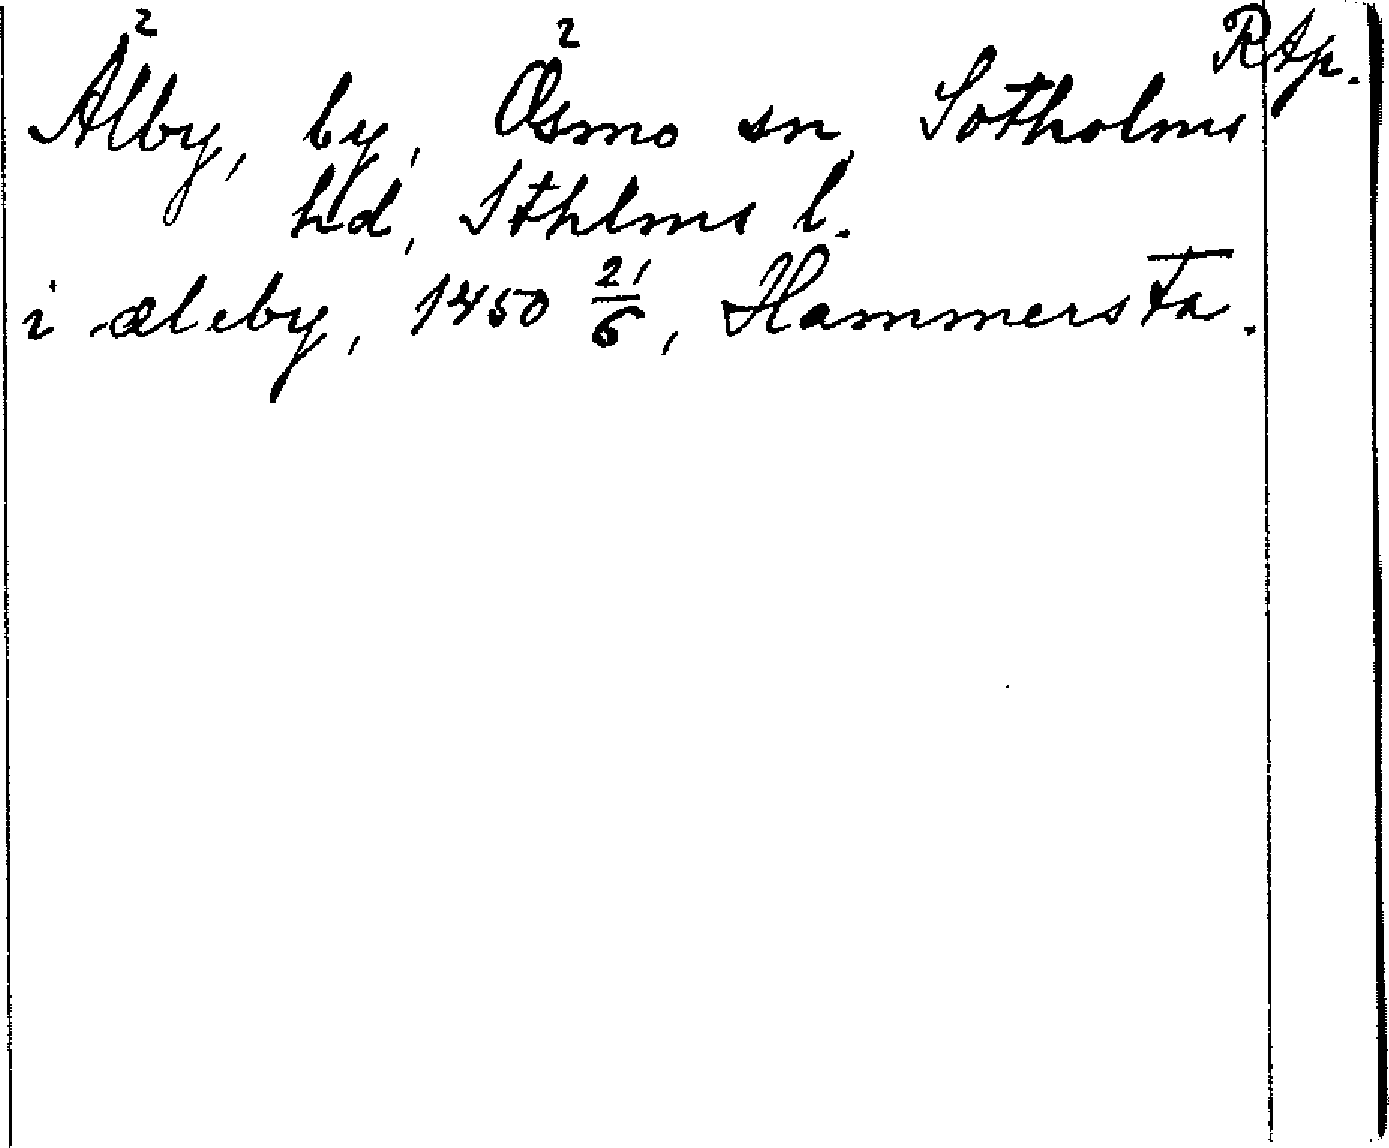 RAp.
Älby, by, Ösmo sn, Sotholms
hd, Sthlms l.
i æleby, 1450 21/6, Hammersta.